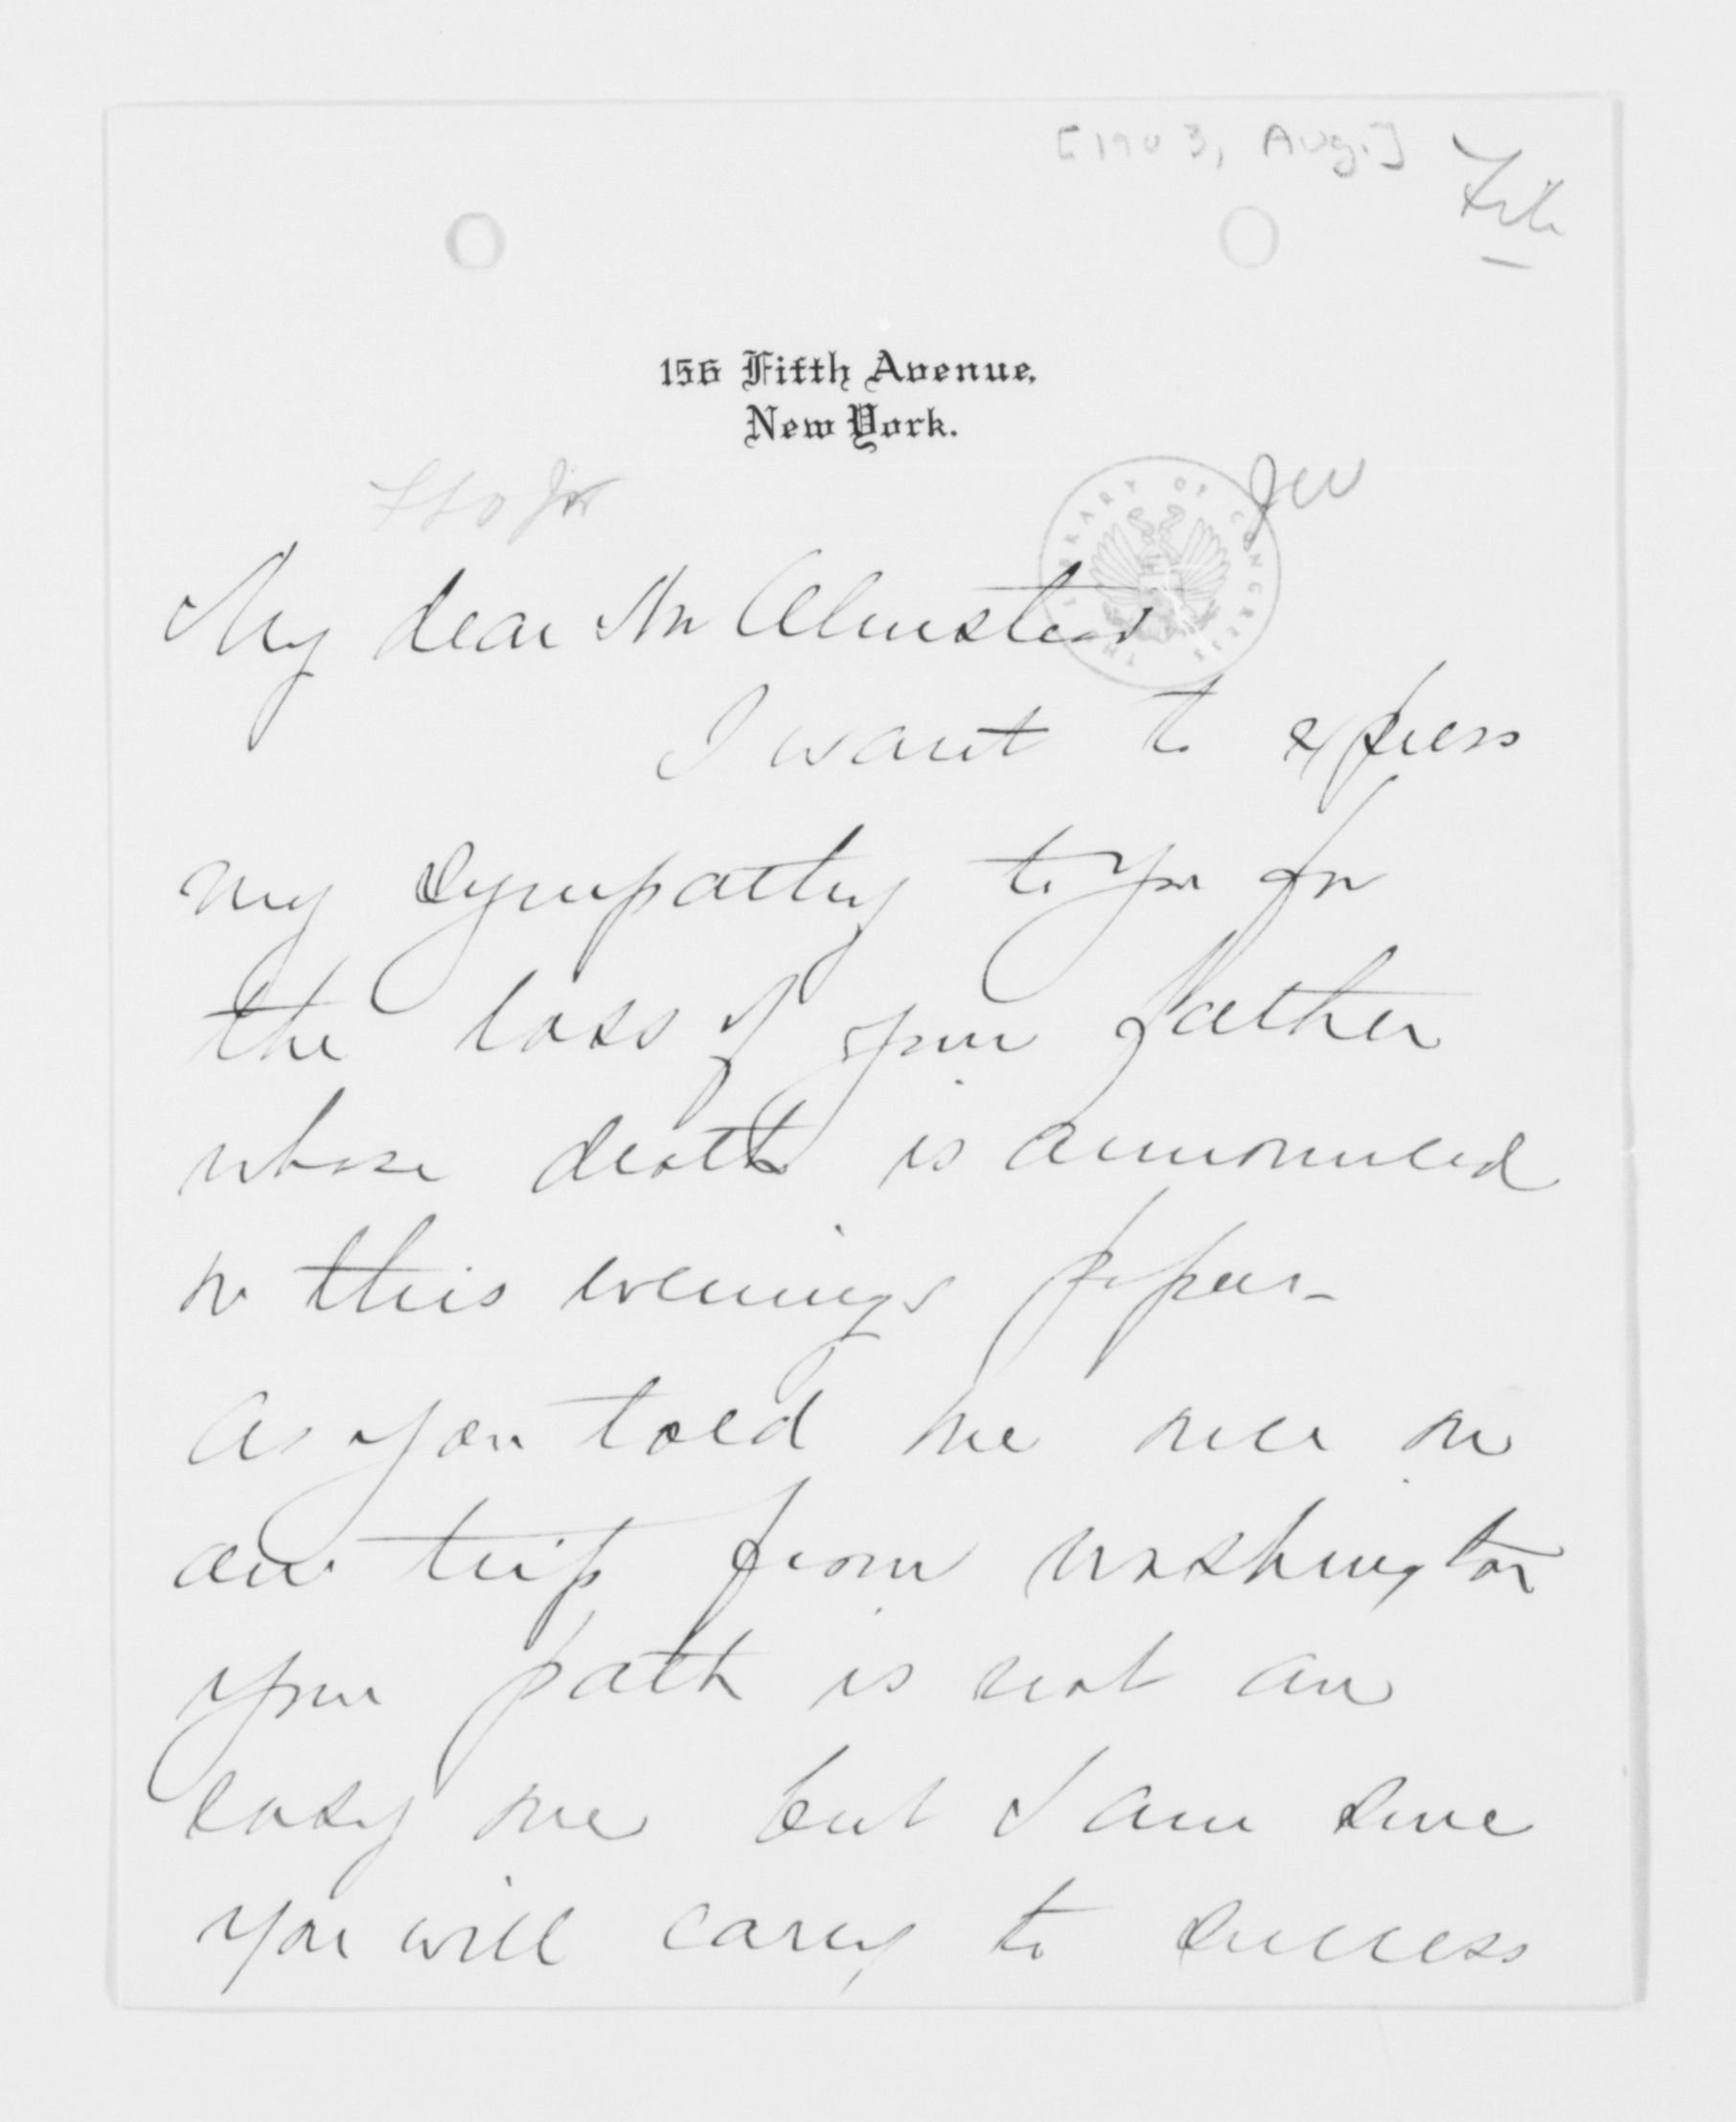 [1903, Aug.]
File
156 Fifth Avenue,
New York.
FLO Jr
THE LIBRARY OF CONGRESS
My dear Mr Olmstead
I want to express
my sympathy to you for
the loss of your father
whose death is announced
in this evenings papers_
As you told me once on
our trip from Washington
your path is not an
easy one but I am sure
you will carry to success